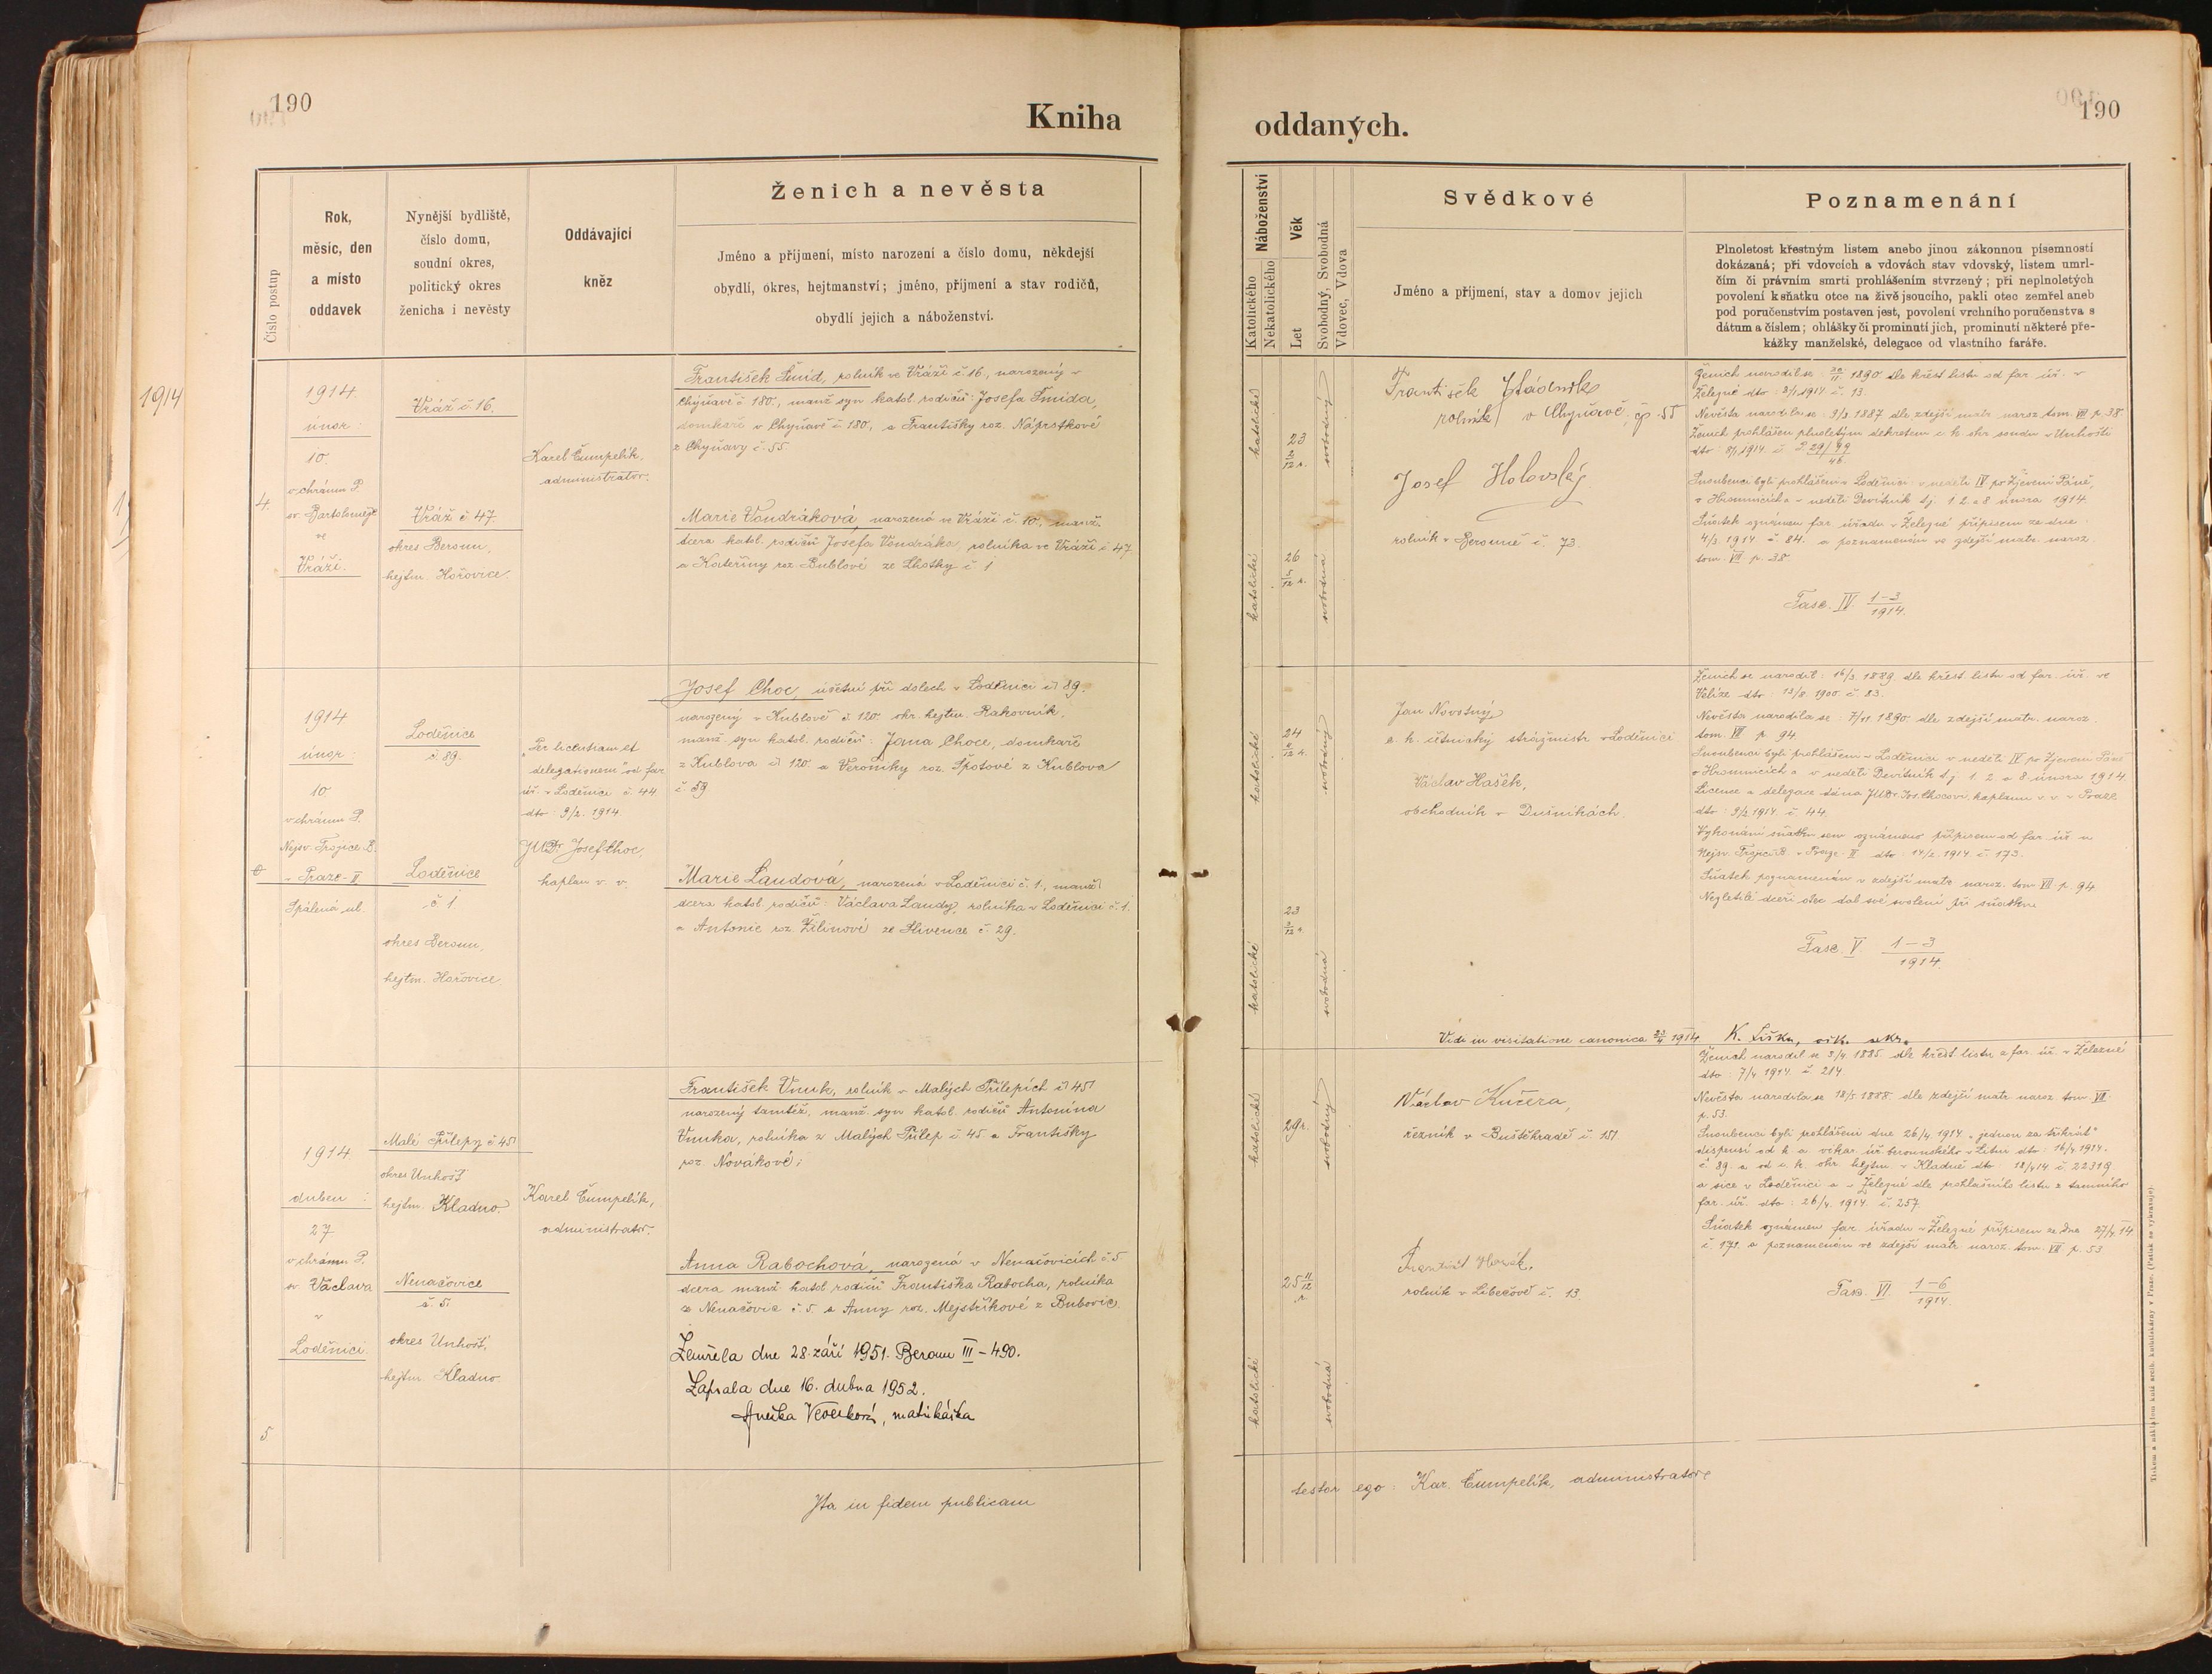 190
Kniha
Číslo postup
Rok,
měsíc, den
a místo
oddavek
Nynější bydliště,
číslo domu,
soudní okres,
politický okres
ženicha i nevěsty
Oddávající
kněz
Ženich a nevěsta
Jméno a příjmení, místo narození a číslo domu, někdejší
obydlí, okres, hejtmanství; jméno, příjmení a stav rodičů,
obydlí jejich a náboženství.
1914
4.
1914.
únor:
10.
v chrámu P.
sv. Bartoloměje
ve
Vráži.
Vráž č. 16.
Vráž č. 47.
okres Beroun,
hejtm. Hořovice.
Karel Čumpelík,
administrátor.
František Šmíd, rolník ve Vráži č. 16., narozený v
Chyňavě č. 180., manž. syn katol. rodičů: Josefa Šmída,
domkaře v Chyňavě č. 180, a Františky roz. Náprstkové
z Chyňavy č. 55.
Marie Vondráková, narozená ve Vráži č. 10., manž.
dcera katol. rodičů Josefa Vondráka, rolníka ve Vráži č. 47.
a Kateřiny roz. Bublové ze Lhotky č. 1
1914
únor:
10
v chrámu P.
Nejsv. Trojice B.
v Praze-II
Spálená ul.
Loděnice
č. 89.
Loděnice
č. 1.
okres Beroun,
hejtm. Hořovice.
"Per licentiam et
delegationem" od far.
úř. v Loděnici č. 44
dto: 9/2. 1914.
JUDr. Josef Choc,
kaplan v. v.
Josef Choc, účetní při dolech v Loděnici č. 89.
narozený v Kublově č. 120. okr. hejtm. Rakovník,
manž. syn katol. rodičů: Jana Choce, domkaře
z Kublova č. 120. a Veroniky roz. Špotové z Kublova
č. 59.
Marie Laudová, narozená v Loděnici č. 1., manž.
dcera katol. rodičů: Václava Laudy, rolníka v Loděnici č. 1.
a Antonie roz. Žilinové ze Slivence č. 29.
5.
1914
duben:
27
v chrámu P.
sv. Václava
v
Loděnici.
Malé Přílepy č. 45
okres Unhošť
hejtm. Kladno.
Nenačovice
č. 5.
okres Unhošť,
hejtm. Kladno
Karel Čumpelík,
administrátor.
František Vnuk, rolník v Malých Přílepích č. 45
narozený tamtéž, manž. syn katol. rodičů Antonína
Vnuka, rolníka z Malých Přílep č. 45 a Františky
roz. Novákové.
Anna Rabochová, narozená v Nenačovicích č. 5
dcera manž. katol. rodičů Františka Rabocha, rolníka
z Nenačovic č. 5. a Anny roz. Mejstříkové z Bubovic.
Zemřela dne 28. září 1951. Beroun III-490.
Zapsala dne 16. dubna 1952.
matrikářka
Ita in fidem publicam
190
oddaných.
Náboženství
Katolického
Nekatolického
Věk
Let
Svobodný, Svobodná
Vdovec, Vdova
Svědkové
Jméno a příjmení, stav a domov jejich
Poznamenání
Plnoletost křestným listem anebo jinou zákonnou písemností
dokázaná; při vdovcích a vdovách stav vdovský, listem umrl-
čím či právním smrti prohlášením stvrzený; při neplnoletých
povolení k sňatku otce na živě jsoucího, pakli otec zemřel aneb
pod poručenstvím postaven jest, povolení vrchního poručenstva s
dátum a číslem; ohlášky či prominutí jich, prominutí některé pře-
kážky manželské, delegace od vlastního faráře.
katolické
23
2/12 r.
svobodný
katolické
26
5/12 r.
svobodná
František
rolník v Chyňavě, čp 55
Josef Holovský
rolník v Berouně č. 73.
Ženich narodil se: 1890 dle křest. listu od far. úř. v
Železné dto: 8/1 1914 č. 13.
Nevěsta narodila se: 9/9. 1887 dle zdejší matr. naroz. tom. VII p. 38.
Ženich prohlášen plnoletým dekretem c. k. okr. soudu v Unhošti
dto: 8/1 1914 č.
Snoubenci byli prohlášeni v Loděnici v neděli IV po Zjevení Páně,
o Hromnicích a v neděli Devítník tj. 1. 2. a 8. února 1914.
Sňatek oznámen far. úřadu v Železné přípisem ze dne
1914 č. 84. a poznamenán ve zdejší matr. naroz.
tom. VII p. 38.
Fasc. IV. 1-3/1914.
katolické
24
svobodný
katolické
23
3/12 r.
svobodná
Jan Novotný
c. k. četnický strážmistr v Loděnici
Václav Hašek,
obchodník v Dušníkách.
Ženich se narodil: 16/2. 1889 dle křest. listu od far. úř. ve
Velíze dto: 13/8. 1900. č. 83.
Nevěsta narodila se: 7/11 1890 dle zdejší matr. naroz.
tom. VII p. 94.
Snoubenci byli prohlášeni v Loděnici v neděli IV. po Zjevení Páně
o Hromnicích a v neděli Devítník t.j. 1. 2. a 8. února 1914.
Licence a delegace dána JUDr. Jos. Chocovi, kaplanu v. v. v Praze
dto: 9/2 1914 č. 44.
Vykonání sňatku sem oznámeno přípisem od far. úř. u
Nejsv. Trojice B. v Praze-II dto: 14/2. 1914. č. 173.
Sňatek poznamenán v zdejší matr. naroz. tom. VII. p. 94.
Nezletilé dceři otec dal své svolení při sňatku
Fasc. V. 1-3/1914.
Vidi in visitatione canonica 23/4 1914 K. Liška, vik. sekr.
katolické
29 r.
svobodný
katolické
25 11/12 r.
svobodná
Václav Kučera,
řezník v Buštěhradě č. 151
František Horák,
rolník v Libečově č. 13.
Ženich narodil se 3/4. 1885 dle křest. listu z far. úř. v Železné
dto: 7/4 1914. č. 214.
Nevěsta narodila se 18/5. 1888. dle zdejší matr. naroz. tom. VII.
p. 53.
Snoubenci byli prohlášeni dne 26/4. 1914. "jednou za třikrát"
dispensí od k. a. vikar. úř. berounského v Litni dto: 16/4 1914.
č. 89. a od c. k. okr. hejtm. v Kladně dto: 18/4 14 č. 22319.
a sice v Loděnici a v Železné dle prohlašního listu z tamního
far. úř. dto: 26/4. 1914 č. 257.
Sňatek oznámen far. úřadu v Železné přípisem ze dne 27/4 14
č. 171. a poznamenán ve zdejší matr. naroz. tom. VII. p. 53.
Fasc. VI. 1-6/1914.
testor ego: Kar. Čumpelík, administrátor